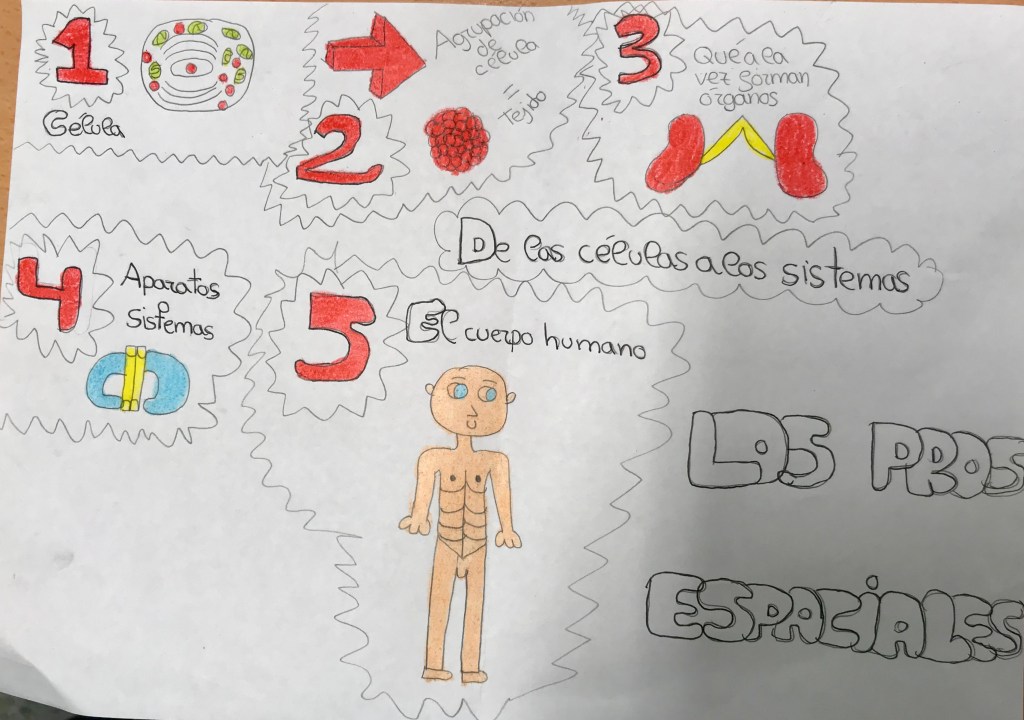 1
Célula
Agrupación
de
célula
=
Tejido
2
3
Que a la
vez forman
órganos
De las células a los sistemas
4
Aparatos
o
sistemas
5
El cuerpo humano
LOS PROS
ESPACIALES